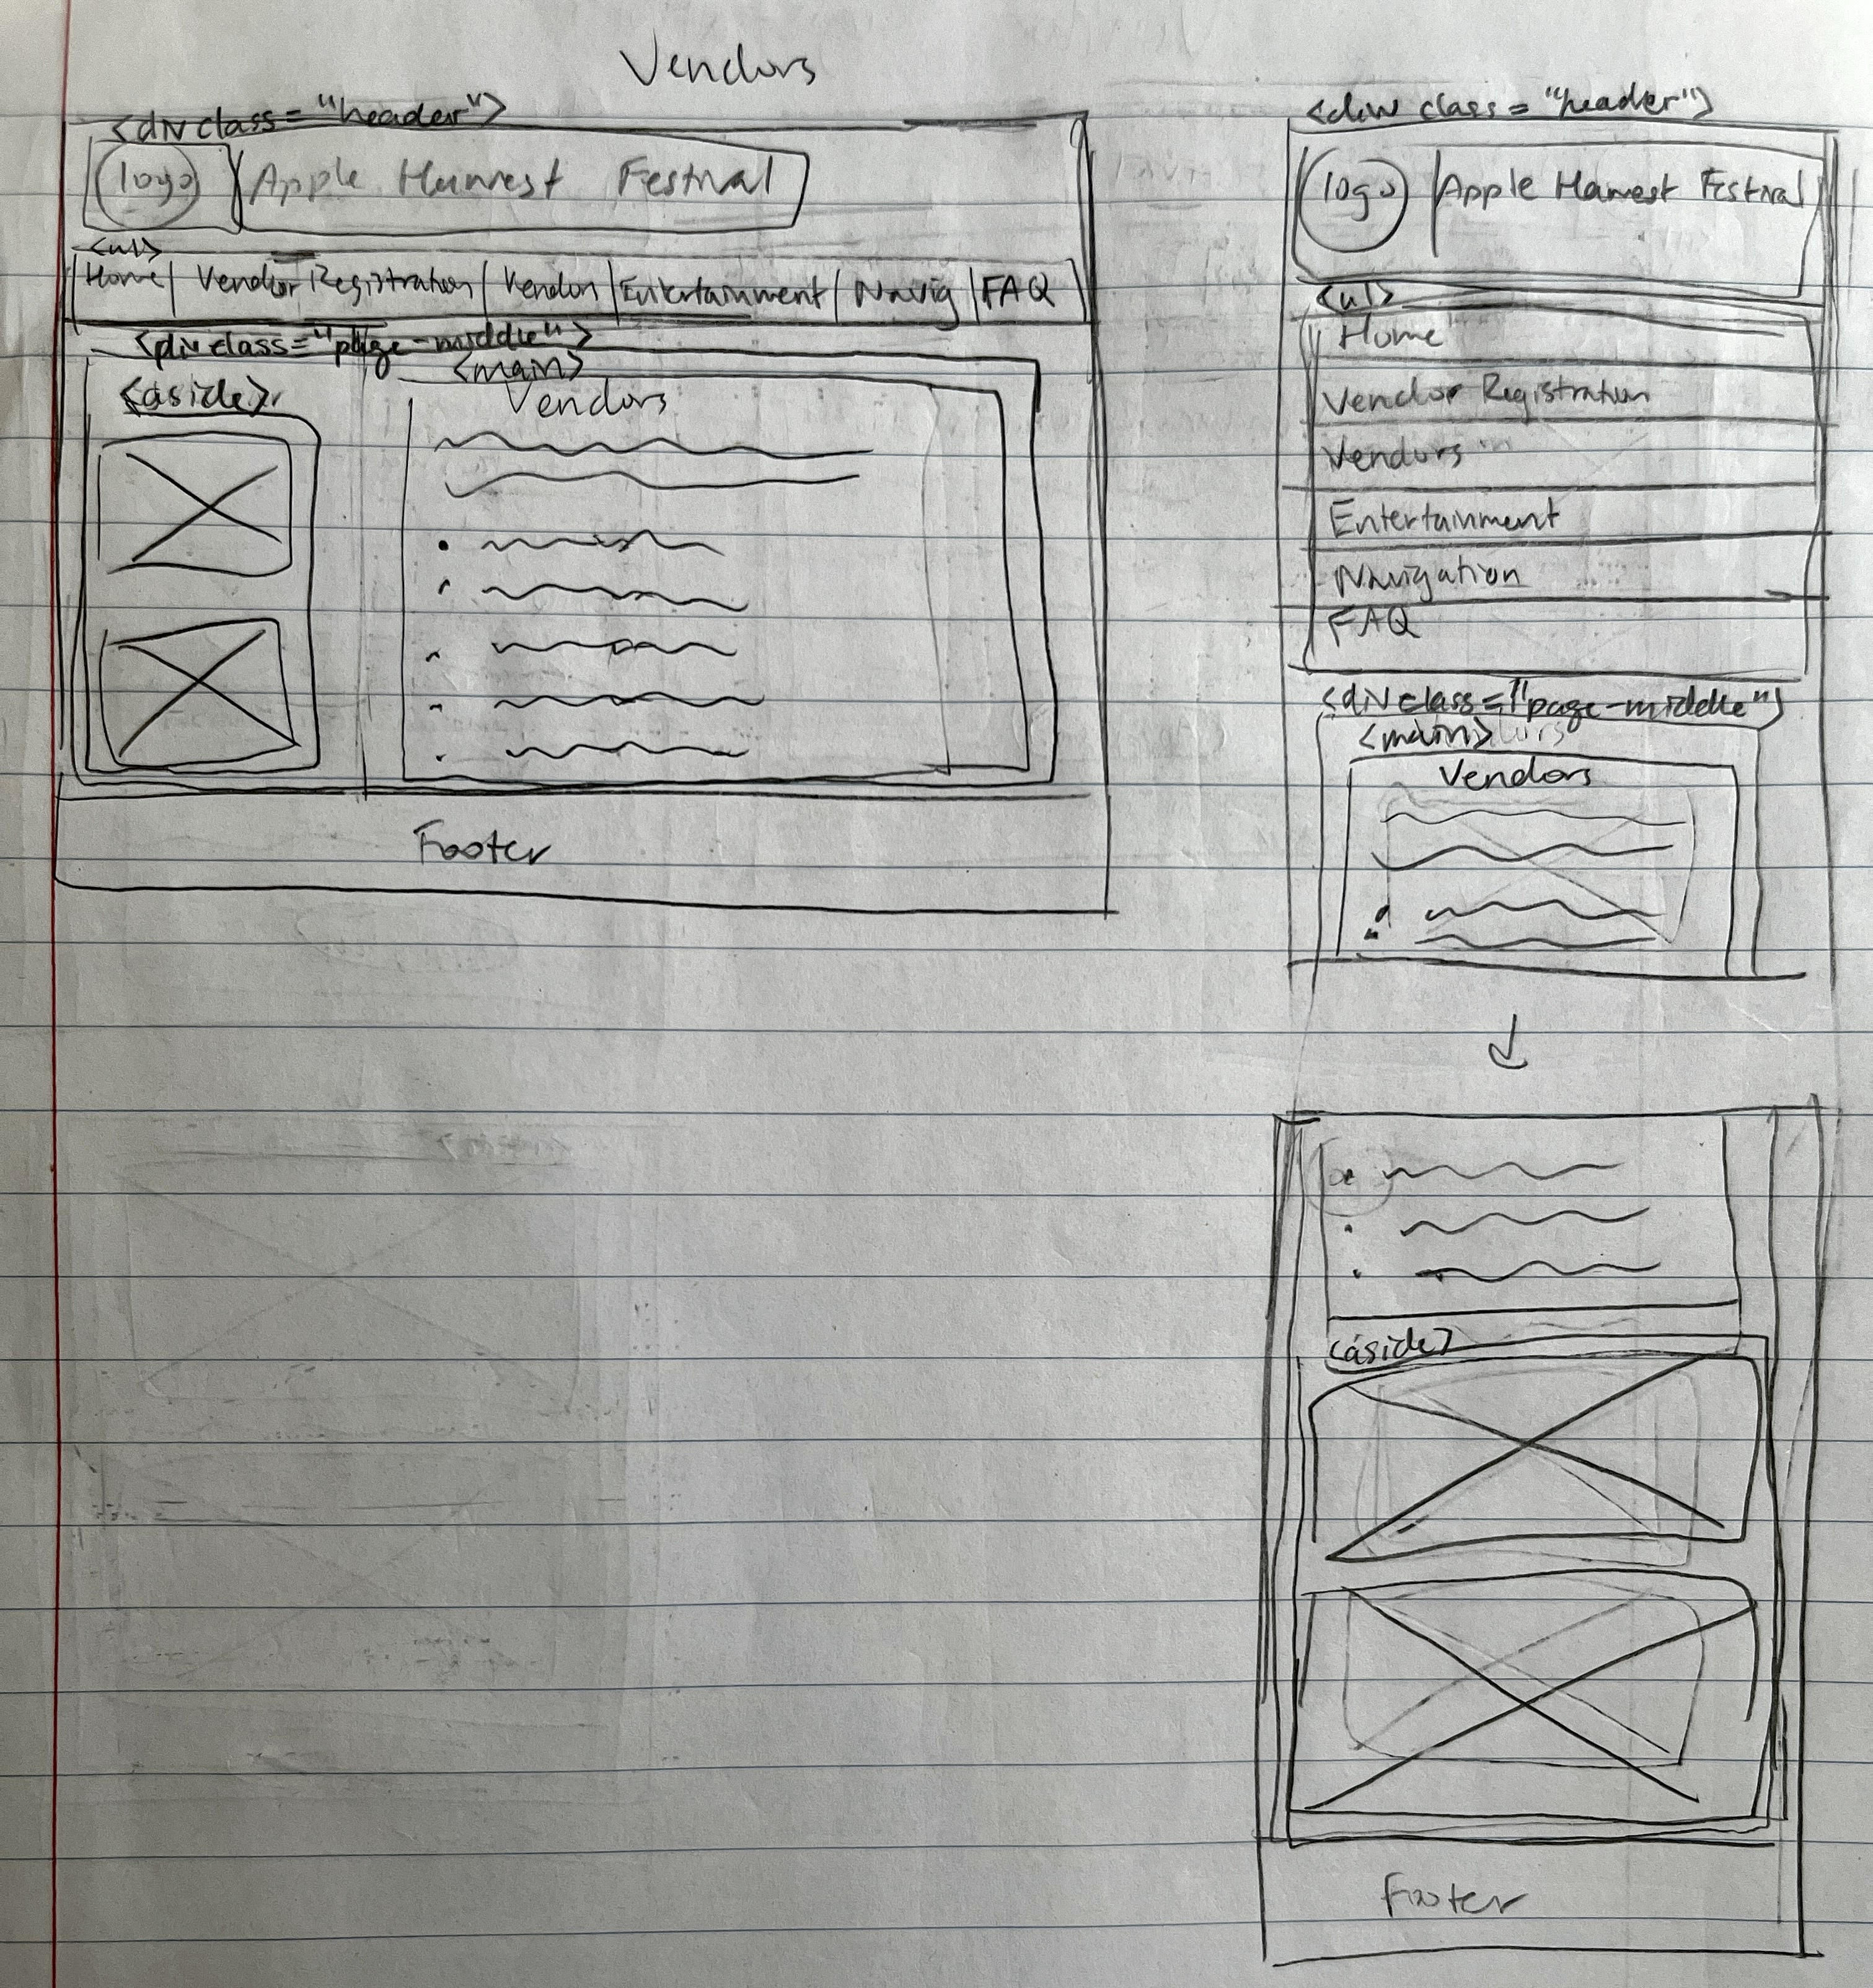 Vendors
<div class="header">
logo Apple Harvest Festival
<ul>
Home | Vendor Registration | Vendors | Entertainment | Navig | FAQ
<div class="page-middle">
<main>
<aside>
Vendors
Footer
<div class="header">
logo Apple Harvest Festival
<ul>
Home
Vendor Registration
Vendors
Entertainment
Navigation
FAQ
<div class="page-middle">
<main>
Vendors
<aside>
Footer